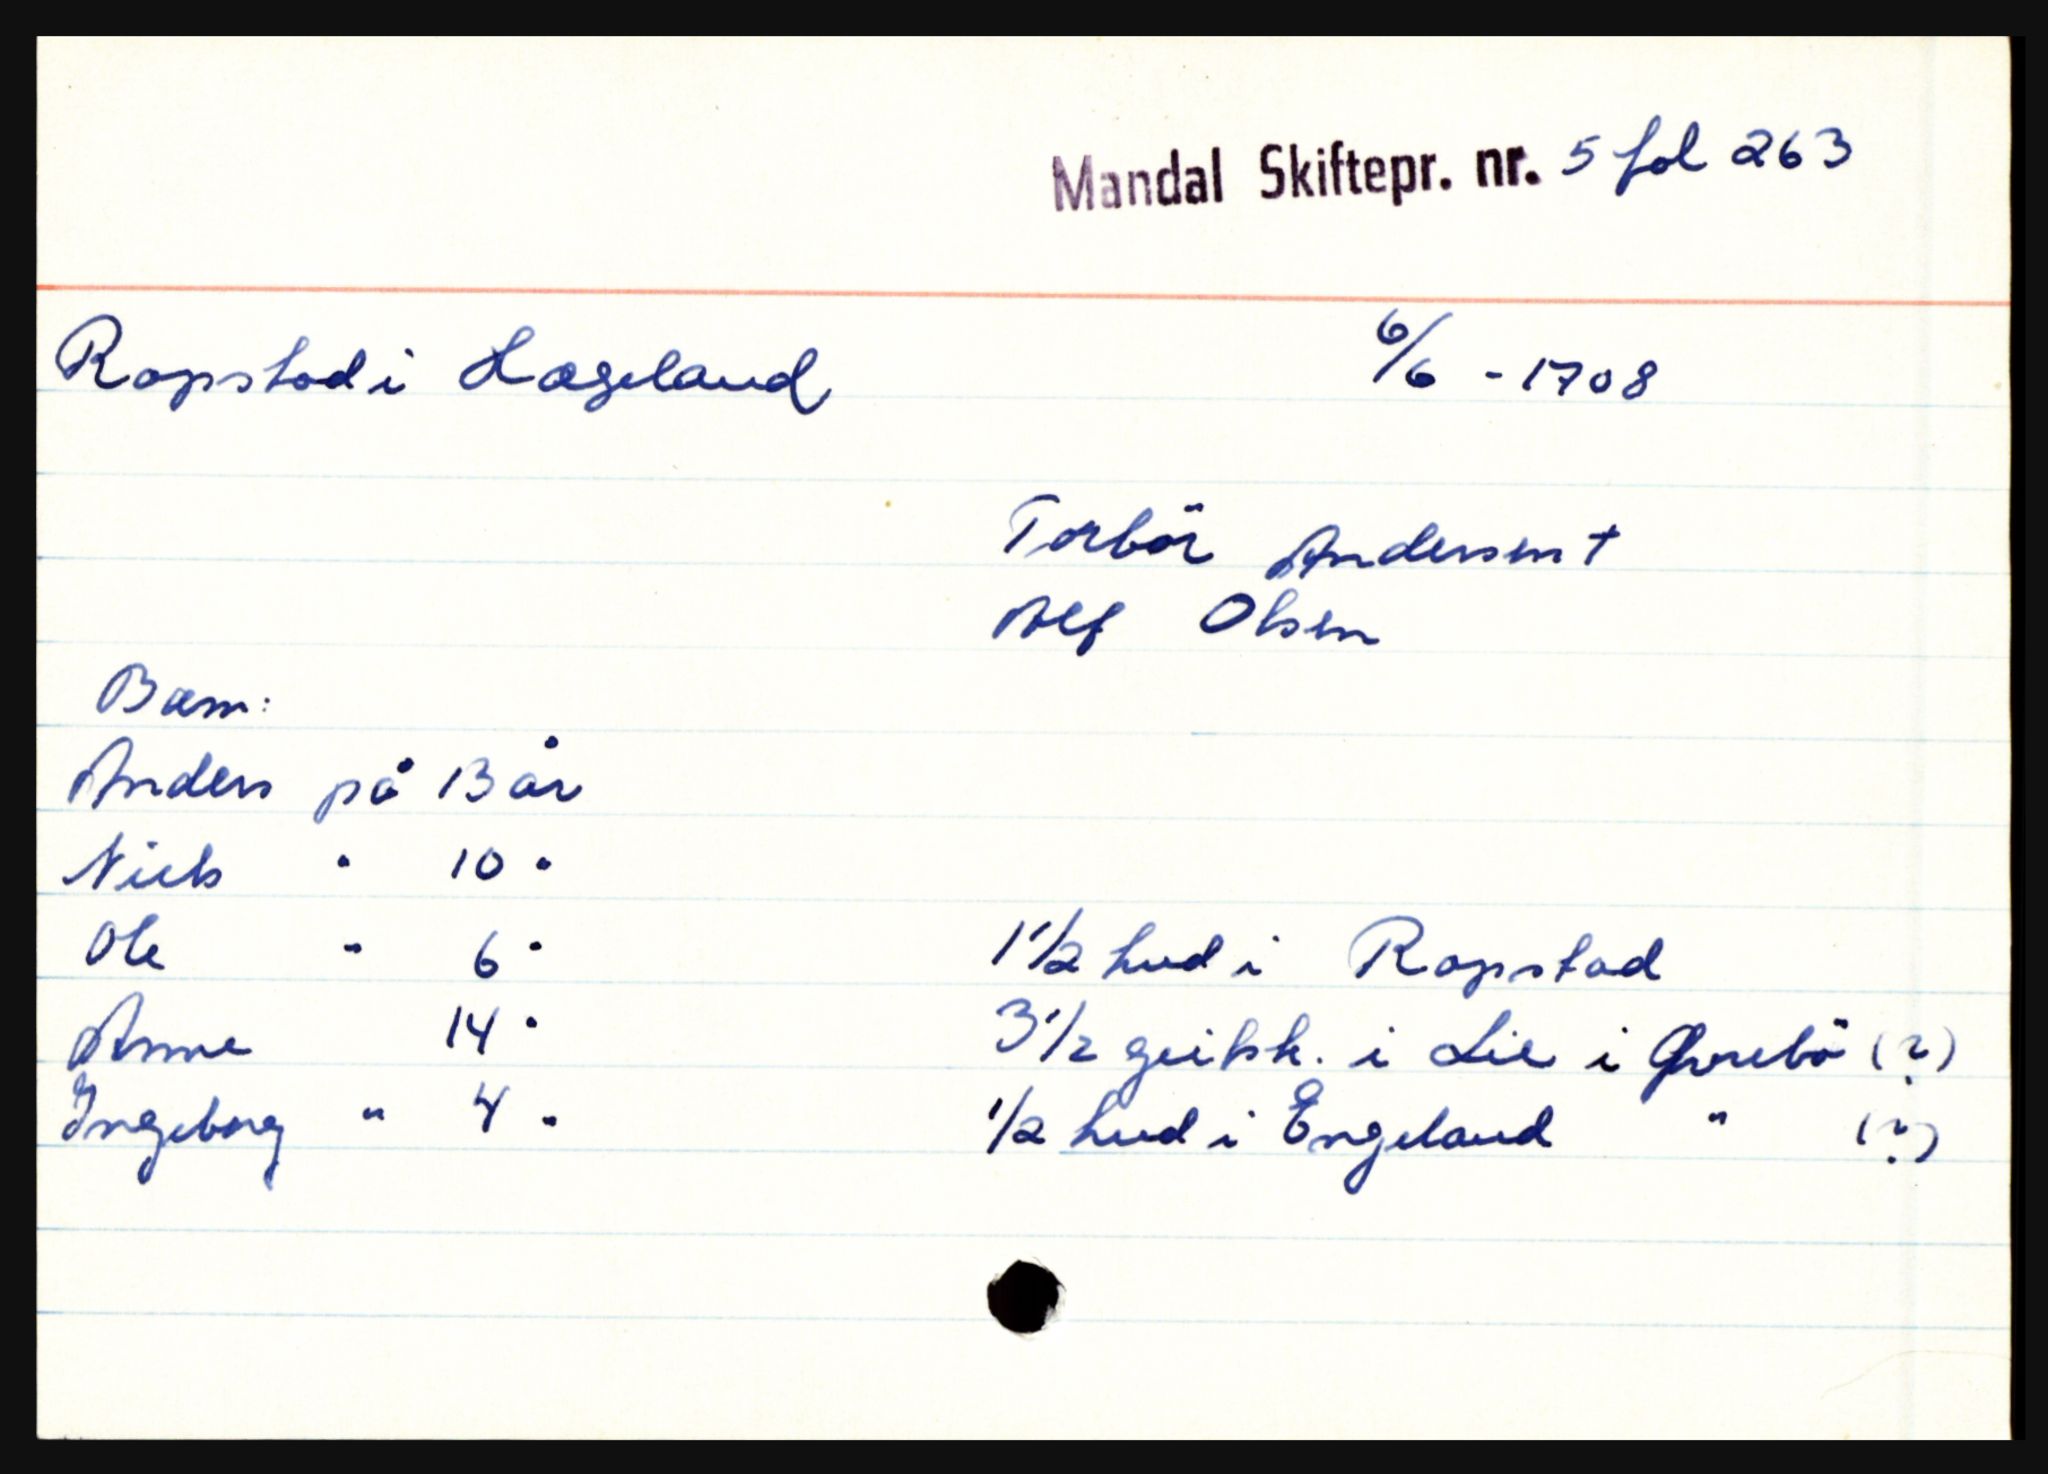 Mandal Skiftepr. nr. 5 fol 263
Ropstad i Hægeland 6/6 - 1708
Torbör Andersen +
Alf Olsen
Barn:
Anders på 13 år
Niels " 10 "
Ole " 6 " 1 1/2 hud i Ropstad
Anne 14 " 3 1/2 geitsk. i Lie i Øvrebö (?)
Ingeborg " 4 " 1/2 hud i Engeland " (?)